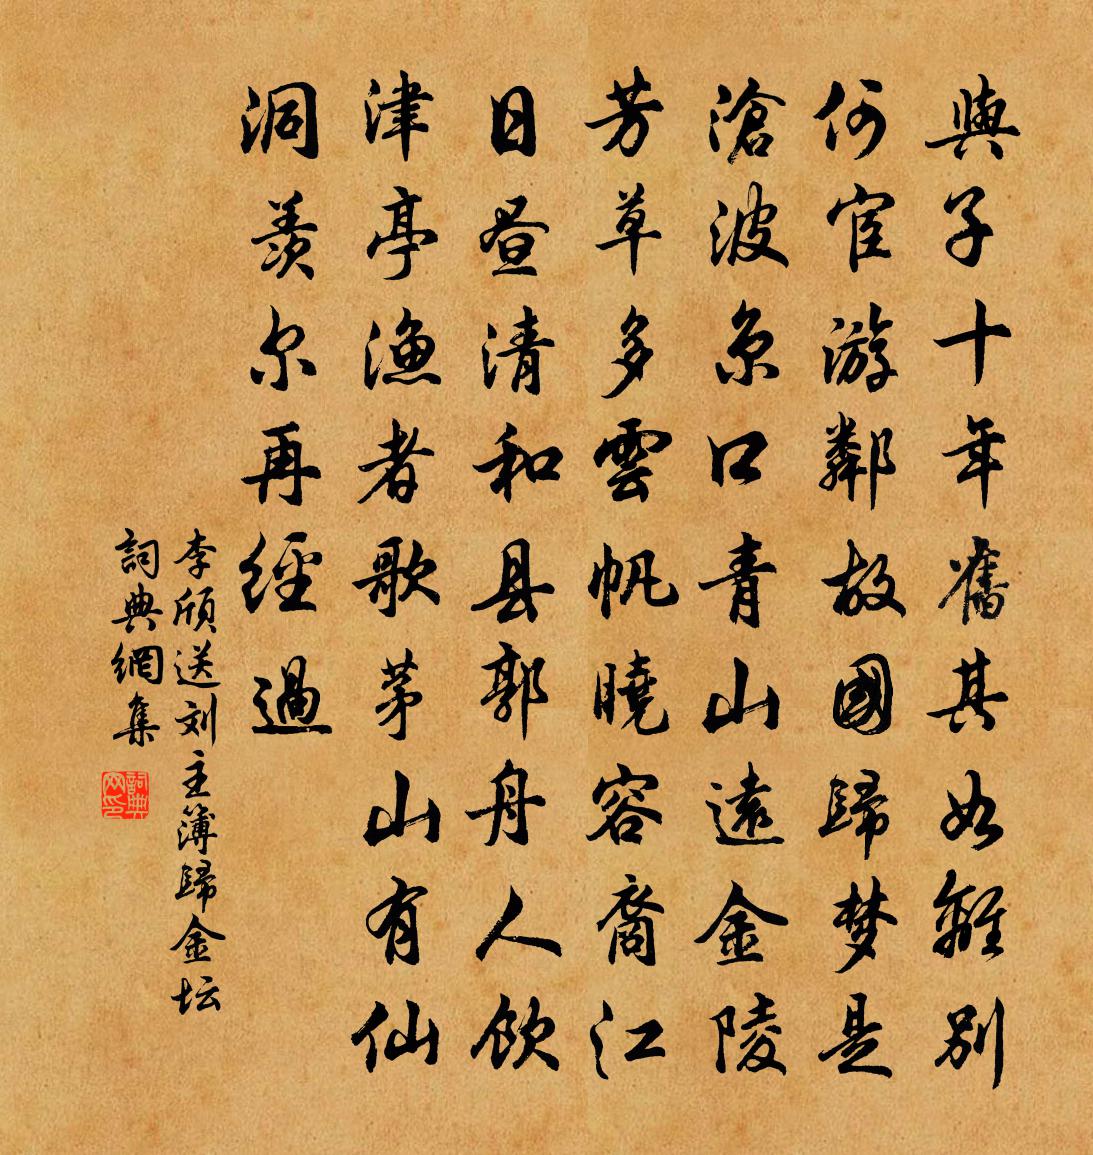 與子十年舊其如離別
何宦游鄰故國歸梦是
滄波京口青山遠金陵
芳草多雲帆曉容裔江
日昼清和县郭舟人飲
津亭漁者歌茅山有仙
洞羨尔再經過
李頎送刘主簿歸金坛
詞典網集
詞典网印